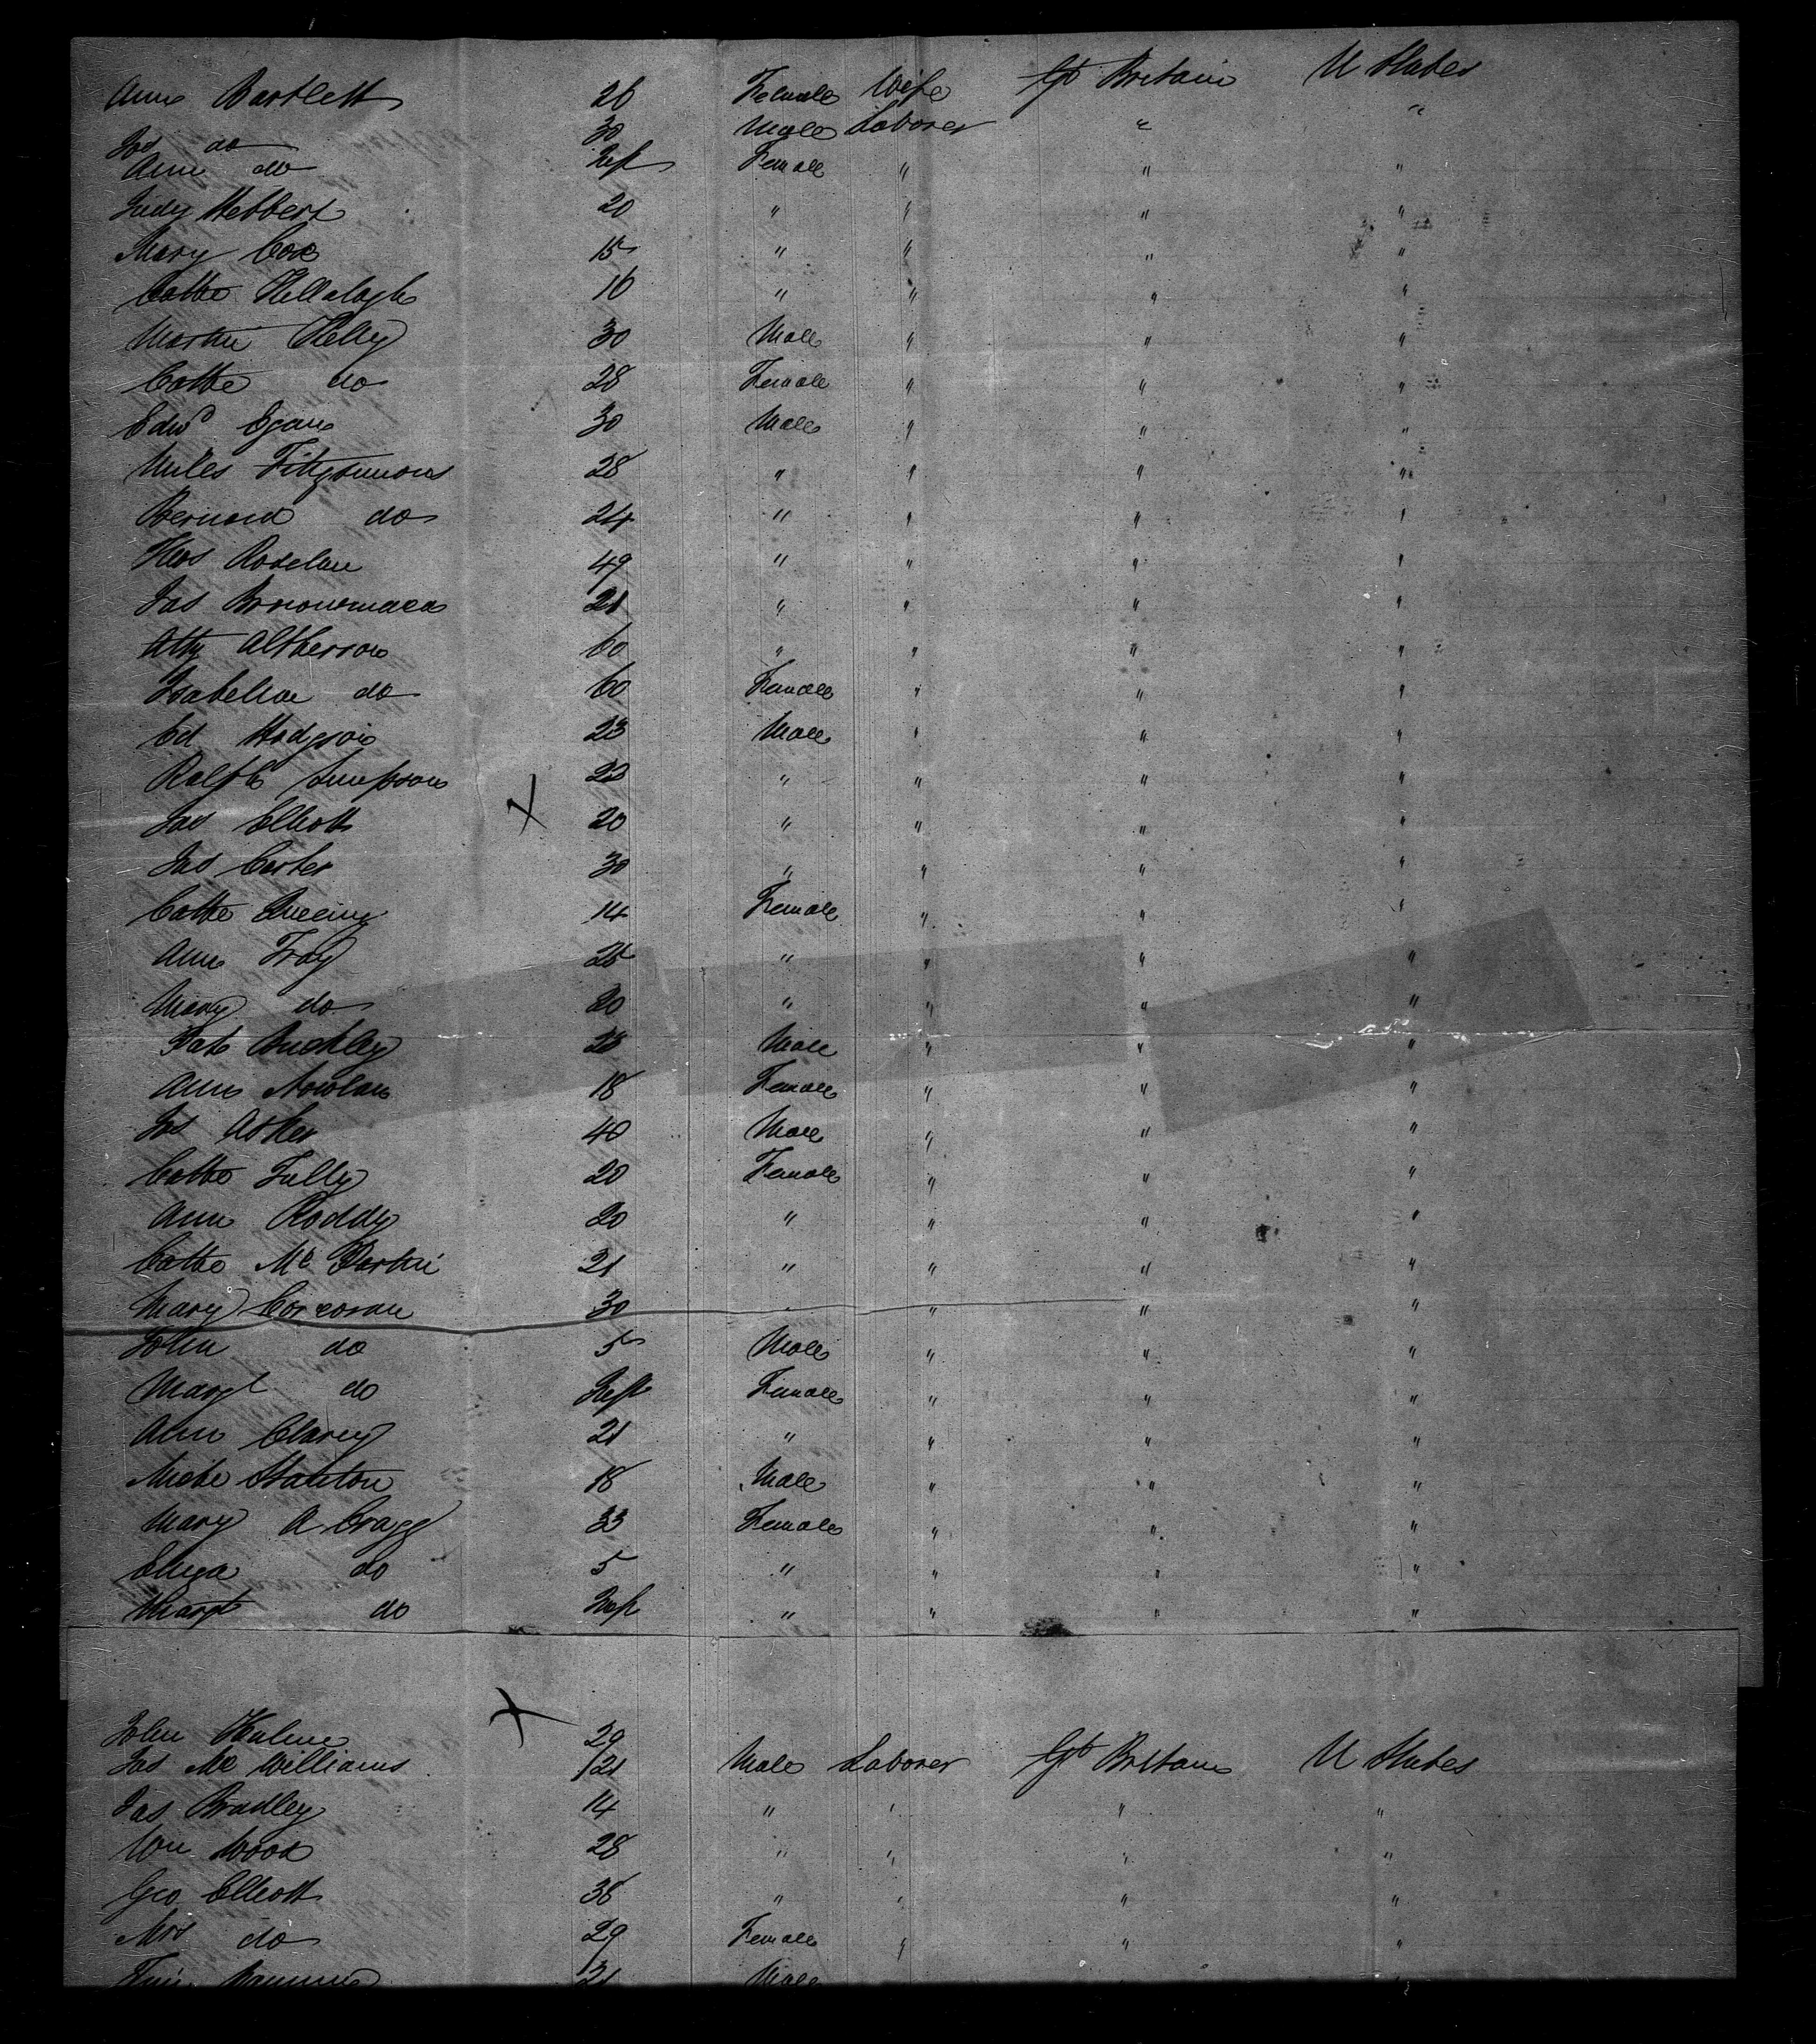 Ann Bartlett 26 Female Wife Gt Britain U States
Jas do 30 Male Laborer " "
Ann do Inft Female " " "
Judy Hebbert 20 " " " "
Mary Cox 15 " " " "
Cathe 16 " " " "
Martin Kelly 30 Male " " "
Cathe do 28 Female " " "
Edwd Egan 30 Male " " "
Miles Fitzsimons 28 " " " "
Bernard do 24 " " " "
Thos 49 " " " "
Jas 21 " " " "
60 " " " "
Isabella do 60 Female " " "
Ed Hodgson 23 Male " " "
Ralph Simpson 22 " " " "
Jas Elliott X 20 " " " "
Jas Carter 30 " " " "
Cathe 14 Female " " "
Ann 25 " " " "
Mary do 20 " " " "
Pat Buckley 28 Male " " "
Ann Nowlan 18 Female " " "
Jos Asher 40 Male " " "
Cathe Tully 20 Female " " "
Ann Roddy 20 " " " "
Cathe Mc 21 " " " "
Mary Corcoran 30 " " " "
John do 5 Male " " "
Margt do Inft Female " " "
Ann Clarey 21 " " " "
Stanton 18 Male " " "
Mary A Cragg 33 Female " " "
Eliza do 5 " " " "
Margt do Inft " " " "
John Hulme X 29
Jas Mc Williams 21 Male Laborer Gt Britain U States
Jas Bradley 14 " " " "
Wm Wood 28 " " " "
Geo Elliott 38 " " " "
Mrs do 29 Female " " "
21 Male